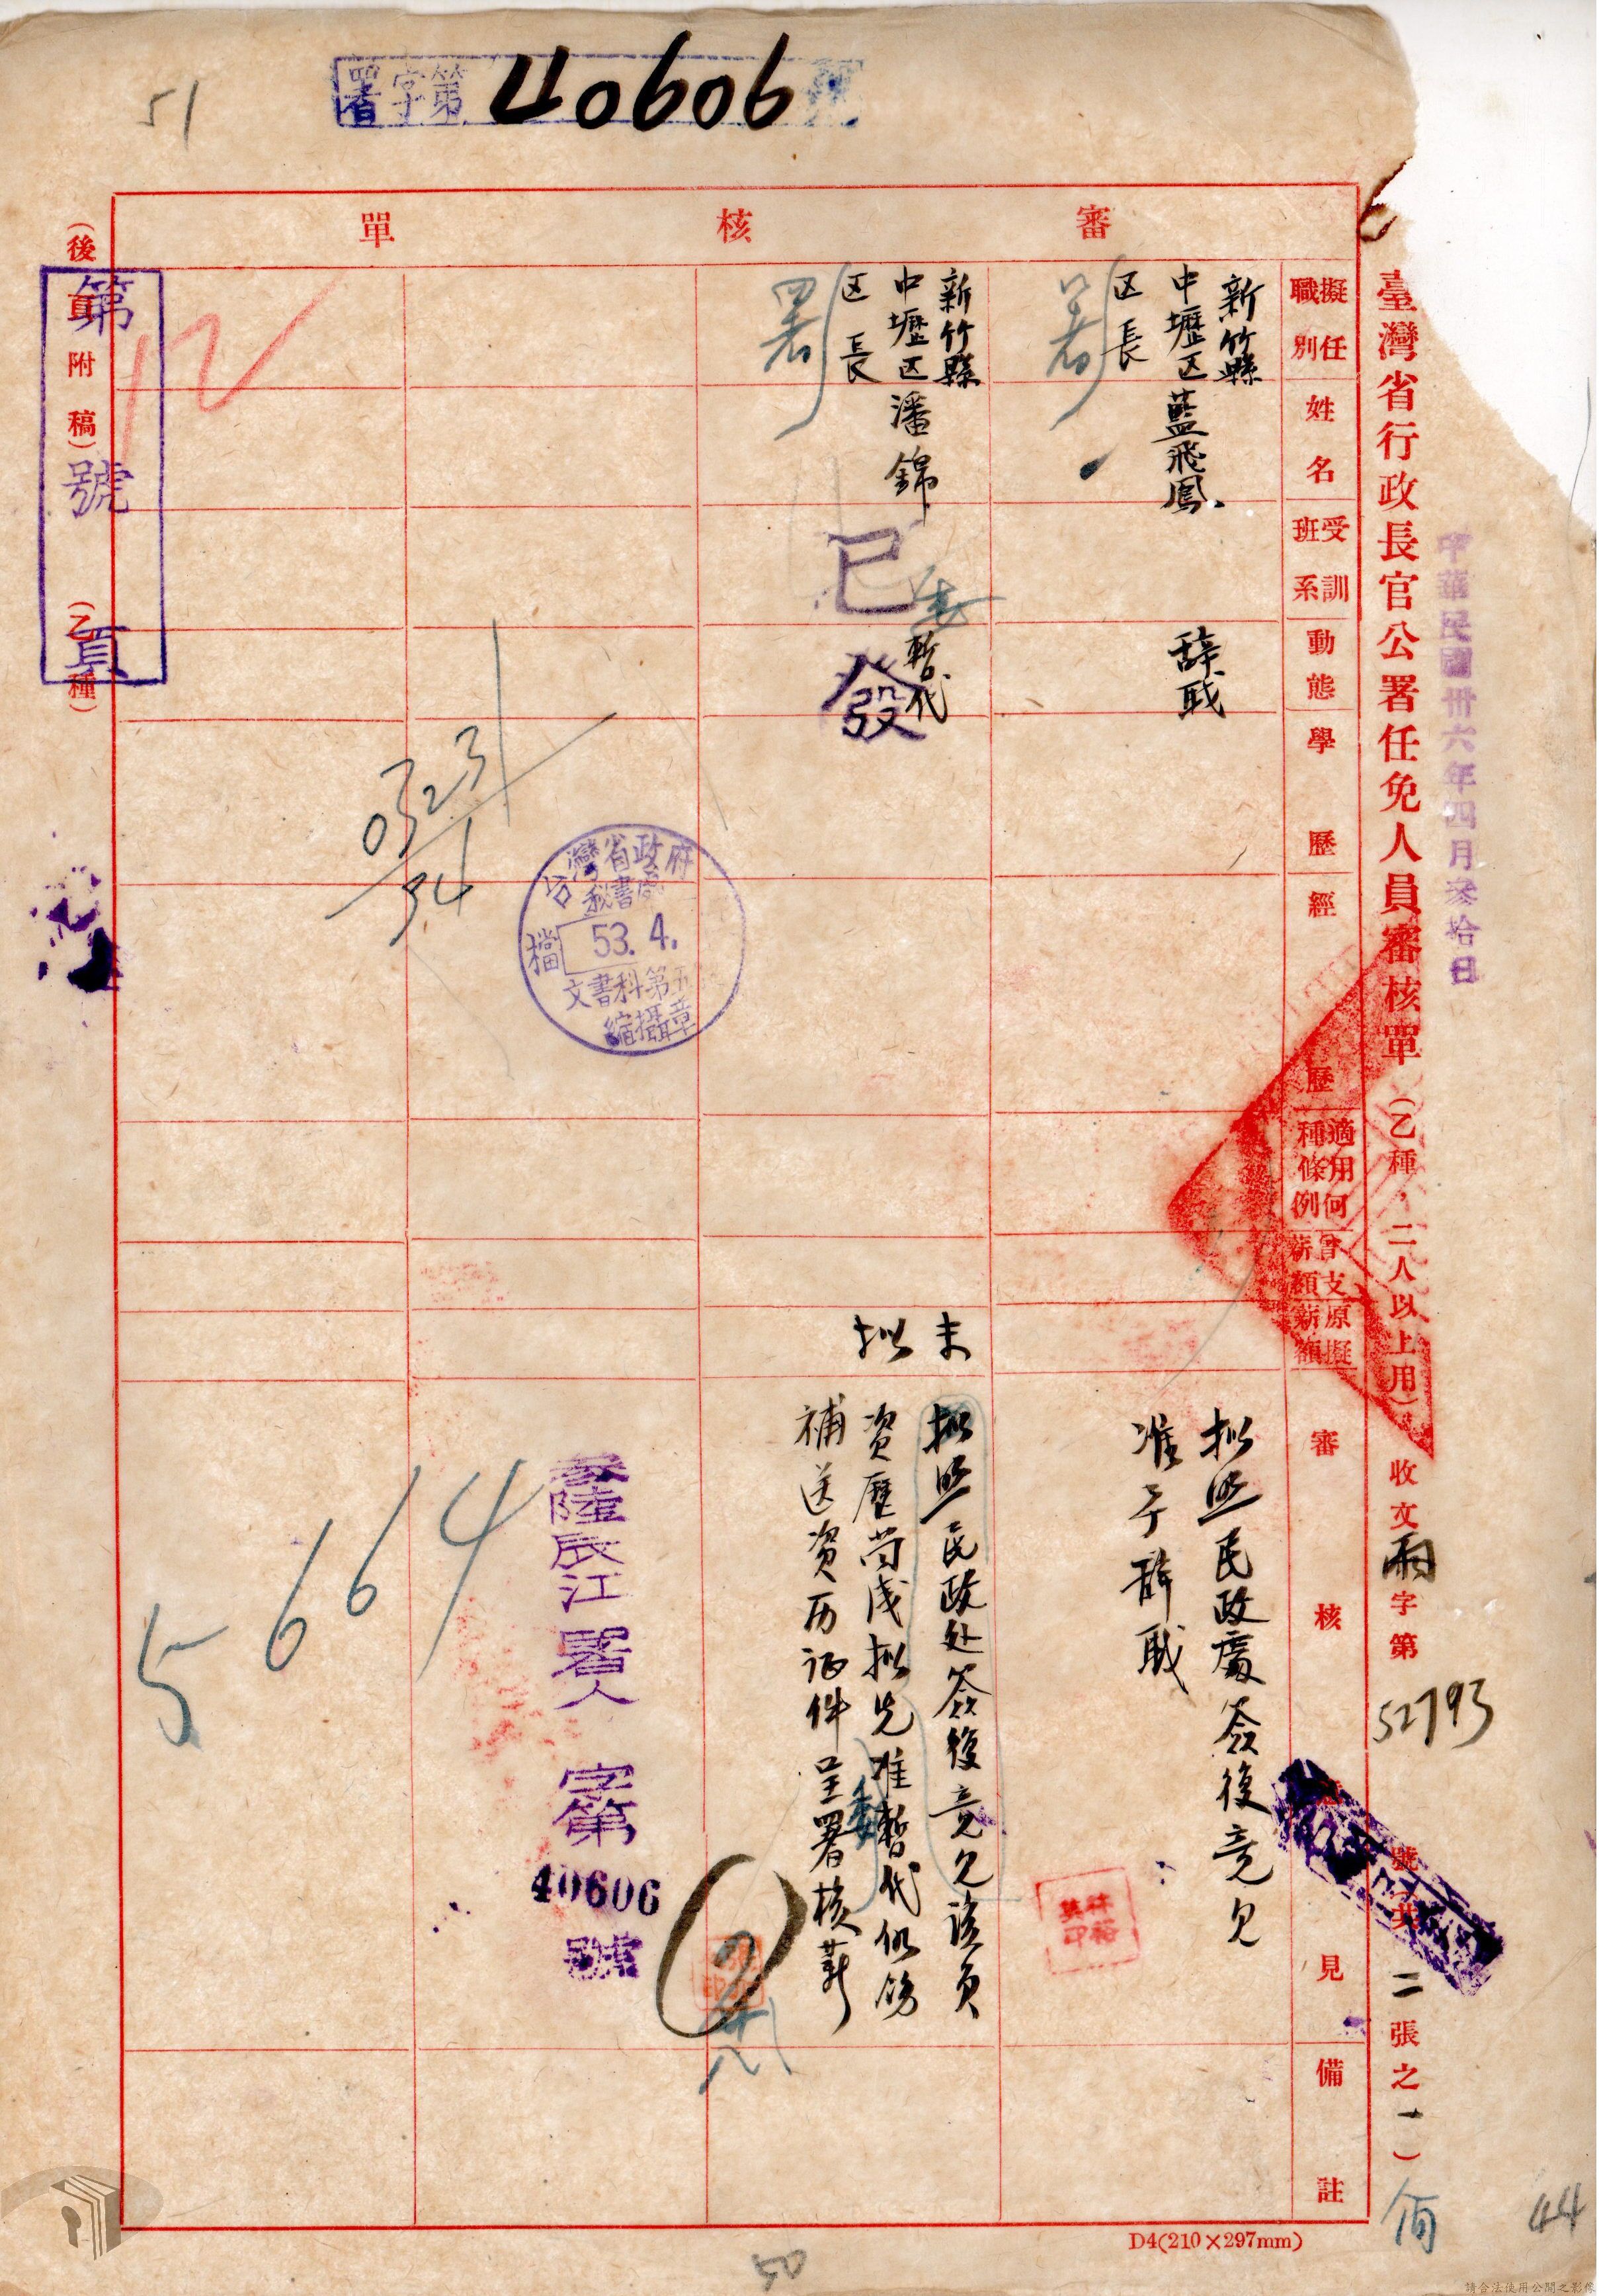 51
署字第 40606 號
中華民國卅六年四月叁拾日
臺灣省行政長官公署任免人員審核單（乙種，二人以上用）收文雨字第52793號（共二張之一）
審核單
擬任職別
姓名
受訓班系
動態
學歷
經歷
適用何種條例
曾支薪額
原擬薪額
審核意見
備註
新竹縣
中壢区
区長
署
藍飛鳳
辞职
拟照民政處簽復意見
准予辞职
新竹縣
中壢区
区長
署
潘錦
暫代
已發
未拟
拟照民政处簽復意见該員
資歷尚淺拟先准暫代仍飭
補送資历证件呈署核薪
委
0323
34
台灣省政府
秘書處
檔 53. 4.
文書科第五
縮攝章
叁陸辰江署人字第
40606
號
5664
（後頁附稿）
（乙種）
第號頁
12
D4(210×297mm)
44
50
請合法使用公開之影像